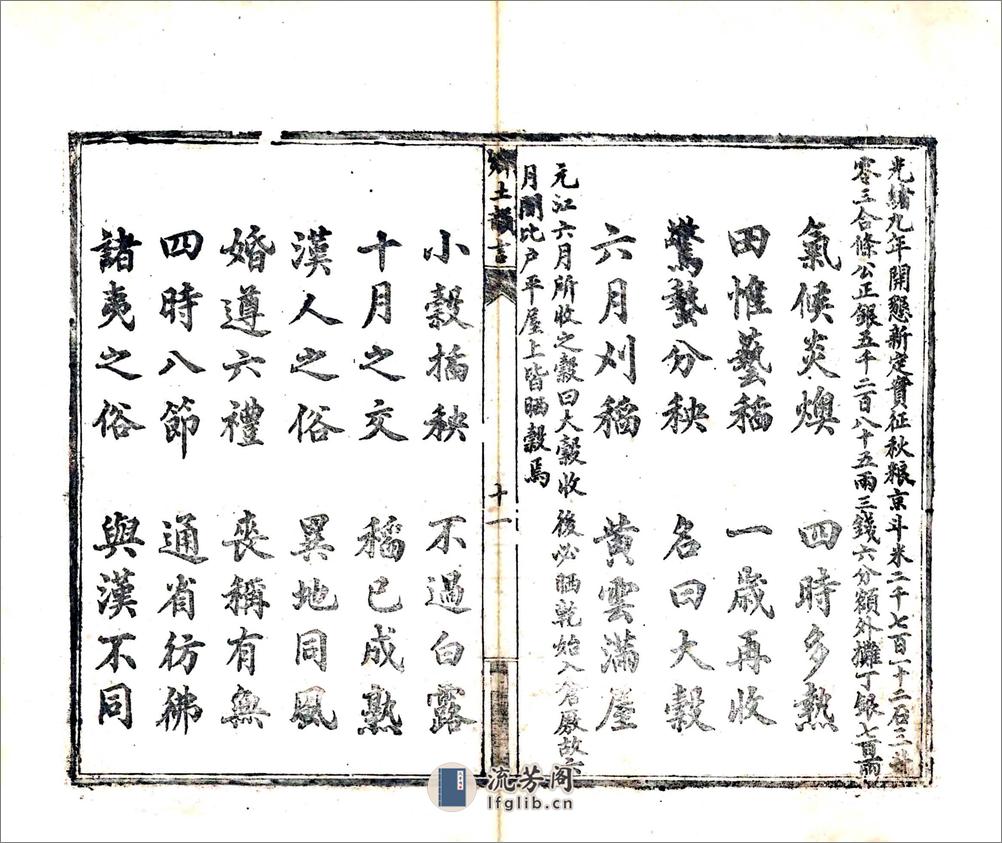 光緒九年開懇新定實征秋粮京斗米二千七百一十二石三升
零三合條公正銀五千二百八十五兩三錢六分額外攤丁銀七百兩
氣候炎燠　四時多熱
田惟藝稻　一歲再收
驚蟄分秧　名曰大穀
六月刈稻　黄雲滿屋
元江六月所收之穀曰大穀收後必晒乾始入倉廒故六
月間比户平屋上皆晒穀焉
鄉土韻言
十一
小穀插秧　不過白露
十月之交　稻已成熟
漢人之俗　異地同風
婚遵六禮　喪稱有無
四時八節　通省彷彿
諸夷之俗　與漢不同
流芳阁
lfglib.cn